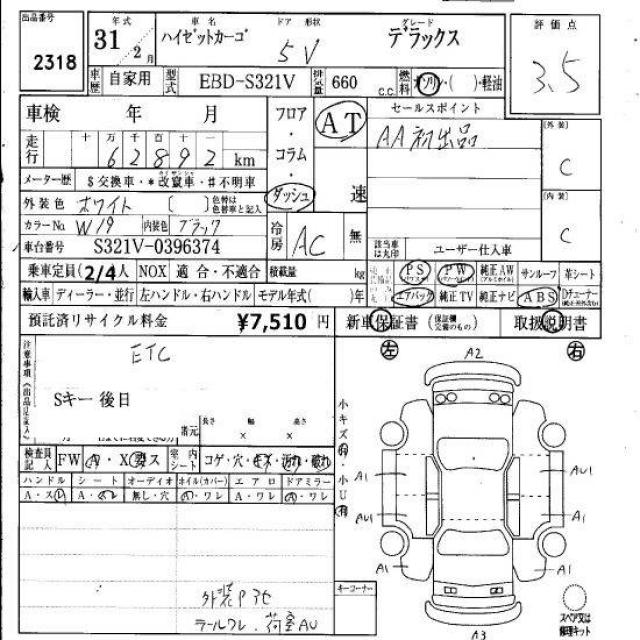 出品番号 年式 車名 ドア 形状 グレード 評価点
2318 31/2月 ハイゼットカーゴ 5V デラックス 3.5
車歴 自家用 型式 EBD-S321V 排気量 660 c.c. 燃料 ガソリン・( )・軽油
車検 年 月 フロア・コラム・ダッシュ AT 速 セールスポイント
AA初出品
走行 十 万 千 百 十 一
62892 km
[外装] C
メーター歴 $交換車・*改竄車・#不明車
[内装] C
外装色 ホワイト ( ) 色替は色替車と記入
カラーNo W19 内装色 ブラック 冷房 AC 無
車台番号 S321V-0396374 該当車は丸印 ユーザー仕入車
乗車定員 2/4人 NOX 適合・不適合 積載量 kg PS PW 純正AW サンルーフ 革シート
輸入車 ディーラー・並行 左ハンドル・右ハンドル モデル年式( )年 エアバック 純正TV 純正ナビ ABS
預託済リサイクル料金 ¥7,510円 新車保証書 (保証欄完備のもの) 取扱説明書
注意事項(出品店記入)
ETC
Sキー後日
左 A2 右
諸元 長さ × 幅 × 高さ
小キズ有・小U有
検査員記入 FW A・X要ス 室内シート コゲ・穴・キズ・汚れ・破れ
ハンドル シート オーディオ ホイル(カバー) エアロ ドアミラー
A・スレ A・ 無し・穴 A・ワレ A・ワレ A・ワレ
A1 AU1
AU1 A1
A1 A1
外装P3セ
ラールワレ.荷室AU
キーコーナー
A3
スペア又は修理キット